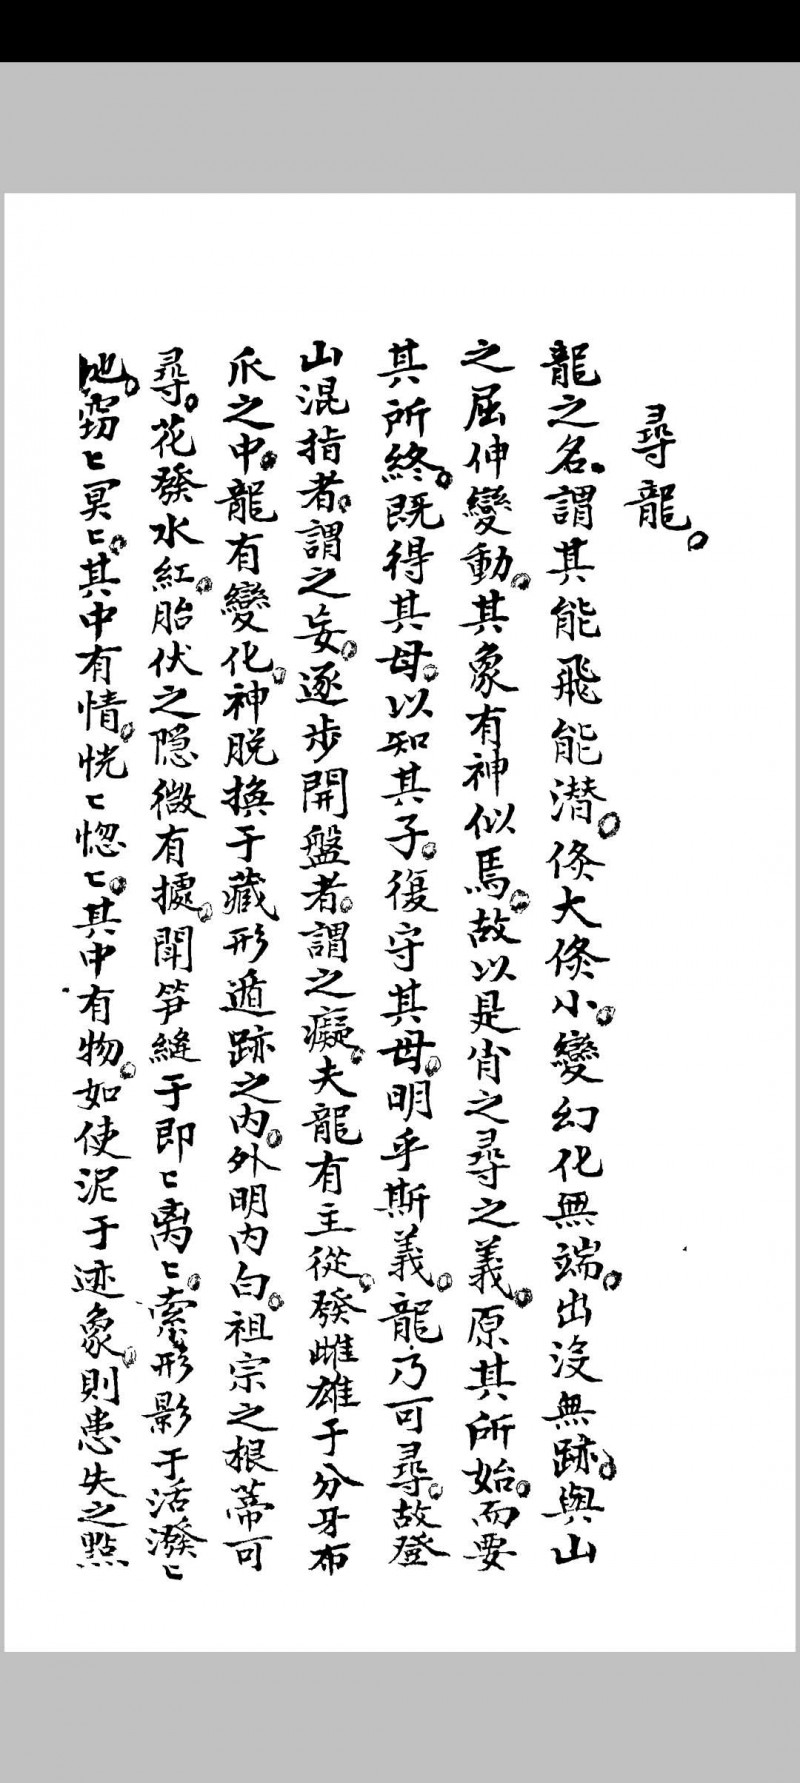 尋龍。
龍之名。謂其能飛能潛。倏大倏小。變幻化無端。出沒無跡。與山
之屈伸變動。其象有神似焉。故以是肖之尋之義。原其所始。而要
其所終。既得其母。以知其子。復守其母。明乎斯義。龍乃可尋。故登
山混指者。謂之妄。逐步開盤者。謂之癡。夫龍有主從。發雌雄于分牙布
爪之中。龍有變化。神脫換于藏形遁跡之內。外明內白。祖宗之根蒂可
尋。花發水紅。胎伏之隐微有據。聞笋縫于即〻离〻。索形影于活潑〻
地。窈〻冥〻。其中有情。恍〻惚〻。其中有物。如使泥于迹象。則患失之點